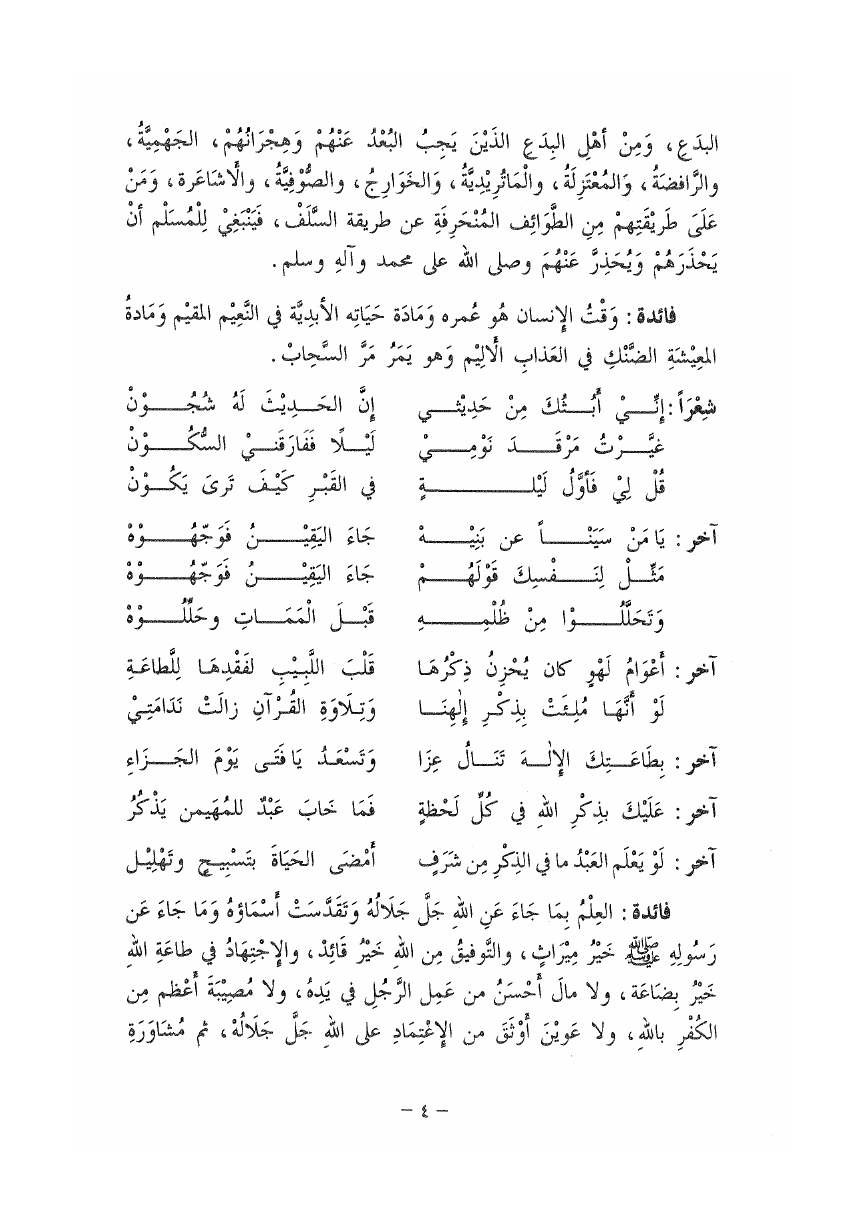 البدَعِ، وَمِنْ أهْلِ البِدَعِ الذَيْنَ يَجِبُ البُعْدُ عَنْهُمْ وَهِجْرَانُهُمْ، الجَهْمِيَّةُ،
والرَّافضَةُ، وَالمُعْتَزِلَةُ، والْمَاتُرِيْدِيَّةُ، وَالخَوَارِجُ، والصُّوْفِيَّةُ، والأشَاعَرة، وَمَنْ
عَلَىَ طَرِيْقَتِهِمْ مِنِ الطَّوَائِفِ المُنْحَرِفَةِ عن طريقة السَّلَفْ، فَيَنْبَغِيْ لِلْمُسَلْم أنْ
يَحْذَرَهُمْ وَيُحَذِرَّ عَنْهُمَ وصلى الله على محمد وآلهِ وسلم.
فائدة: وَقْتُ الإنسان هُو عُمره وَمَادَة حَيَاتِه الأبديَّة في النَّعِيْم المقيْم وَمَادةُ
المعِيْشَةِ الضَّنْكِ في العَذابِ الْأَلِيْم وَهو يَمَرُ مَرَّ السَّحِابْ.
شِعْرَاً: إنِّيْ أَبُثُّكَ مِنْ حَدِيْثي إِنَّ الحَدِيْثَ لَهُ شُجُوْنْ
غَيَّرْتُ مَرْقَدَ نَوْمِيْ لَيْلًا فَفَارَقَنيْ السُّكُوْنْ
قُلْ لِيْ فَأوَّلُ لَيْلَةٍ في القَبْرِ كَيْفَ تَرىَ يَكُوْنْ
آخر: يَا مَنْ سَيَنْأً عن بَنِيْهْ جَاءَ اليَقِيْنُ فَوَجِّهُوْهْ
مَثِّلْ لِنَفْسِكَ قَوْلَهُمْ جَاءَ اليَقِيْنُ فَوَجِّهُوْهْ
وَتَحَلَّلُوْا مِنْ ظُلْمِهِ قَبْلَ الْمَمَاتِ وحَلِّلُوْهْ
آخر: أَعْوَامُ لَهْوٍ كان يُحْزِنُ ذِكْرُهَا قَلْبَ اللَّبِيْبِ لفَقْدِهَا لِلَّطاعَةِ
لَوْ أَنَّهَا مُلِئَتْ بِذِكْرِ إلٰهِنَا وَتِلَاوَةِ القُرْآنِ زالَتْ نَدَامَتِيْ
آخر: بِطَاعَتِكَ الإلٰهَ تَنَالُ عِزا وَتَسْعَدُ يَا فَتَى يَوْمَ الجَزَاءِ
آخر: عَلَيْكَ بذِكْرِ اللهِ في كُلِّ لَحْظةٍ فَمَا خَابَ عَبْدٌ للمُهَيمن يَذْكُرُ
آخر: لَوْ يَعْلَم العَبْدُ ما في الذِكْرِ مِن شَرَفٍ أَمْضَى الحَيَاةَ بتَسْبِيحٍ وتَهْلِيْل
فائدة: العِلْمُ بِمَا جَاءَ عَنِ اللهِ جَلَّ جَلَالُهُ وَتَقَدَّسَتْ أَسْمَاؤهُ وَمَا جَاءَ عَن
رَسُولِهِ ﷺ خَيْرُ مِيْرَاثٍ، والتَّوفيقُ مِن اللهِ خَيْرُ قَائِدْ، والإجْتِهادُ في طاعَةِ اللهِ
خَيْرُ بِضَاعَة، ولا مالَ أَحْسَنُ من عَمِل الرَّجُلِ في يَدِهُ، ولا مُصِيْبَةَ أَعْظم مِن
الكُفْرِ باللهِ، ولا عَوِيْنَ أوْثَقَ من الإعْتِمَادِ على اللهِ جَلَّ جَلَالُهْ، ثم مُشَاوَرَةِ
– ٤ –